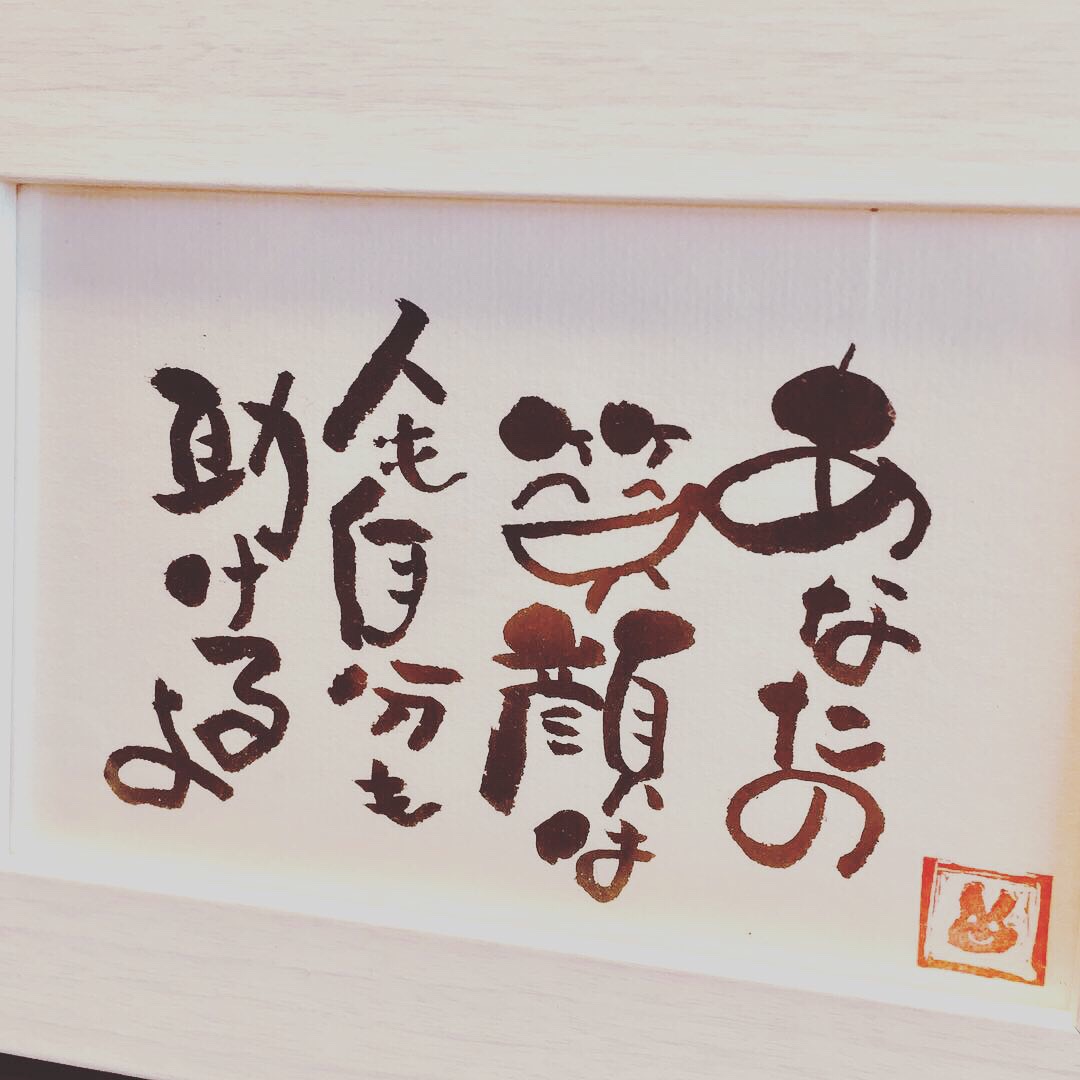 あなたの
笑顔は
人も自分も
助けるよ